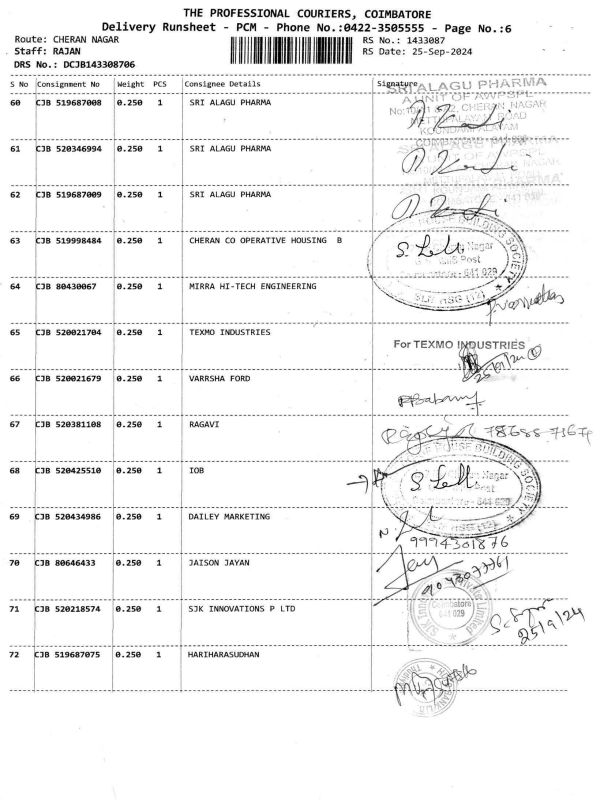 THE PROFESSIONAL COURIERS, COIMBATORE
Delivery Runsheet - PCM - Phone No.:0422-3505555 - Page No.:6
Route: CHERAN NAGAR RS No.: 1433087
Staff: RAJAN RS Date: 25-Sep-2024
DRS No.: DCJB143308706
S No Consignment No Weight PCS Consignee Details Signature
SRI ALAGU PHARMA
A UNIT OF AWPSPL
60 CJB 519687008 0.250 1 SRI ALAGU PHARMA
61 CJB 520346994 0.250 1 SRI ALAGU PHARMA
62 CJB 519687009 0.250 1 SRI ALAGU PHARMA
63 CJB 519998484 0.250 1 CHERAN CO OPERATIVE HOUSING B
HOUSE BUILDING SOCIETY
Nagar
Post
641 029
64 CJB 80430067 0.250 1 MIRRA HI-TECH ENGINEERING
65 CJB 520021704 0.250 1 TEXMO INDUSTRIES For TEXMO INDUSTRIES
66 CJB 520021679 0.250 1 VARRSHA FORD
67 CJB 520381108 0.250 1 RAGAVI
68 CJB 520425510 0.250 1 IOB
HOUSE BUILDING SOCIETY
Nagar
Post
641 029
69 CJB 520434986 0.250 1 DAILEY MARKETING
9994301876
70 CJB 80646433 0.250 1 JAISON JAYAN
9043077761
71 CJB 520218574 0.250 1 SJK INNOVATIONS P LTD
Coimbatore
641 029
25/9/24
72 CJB 519687075 0.250 1 HARIHARASUDHAN